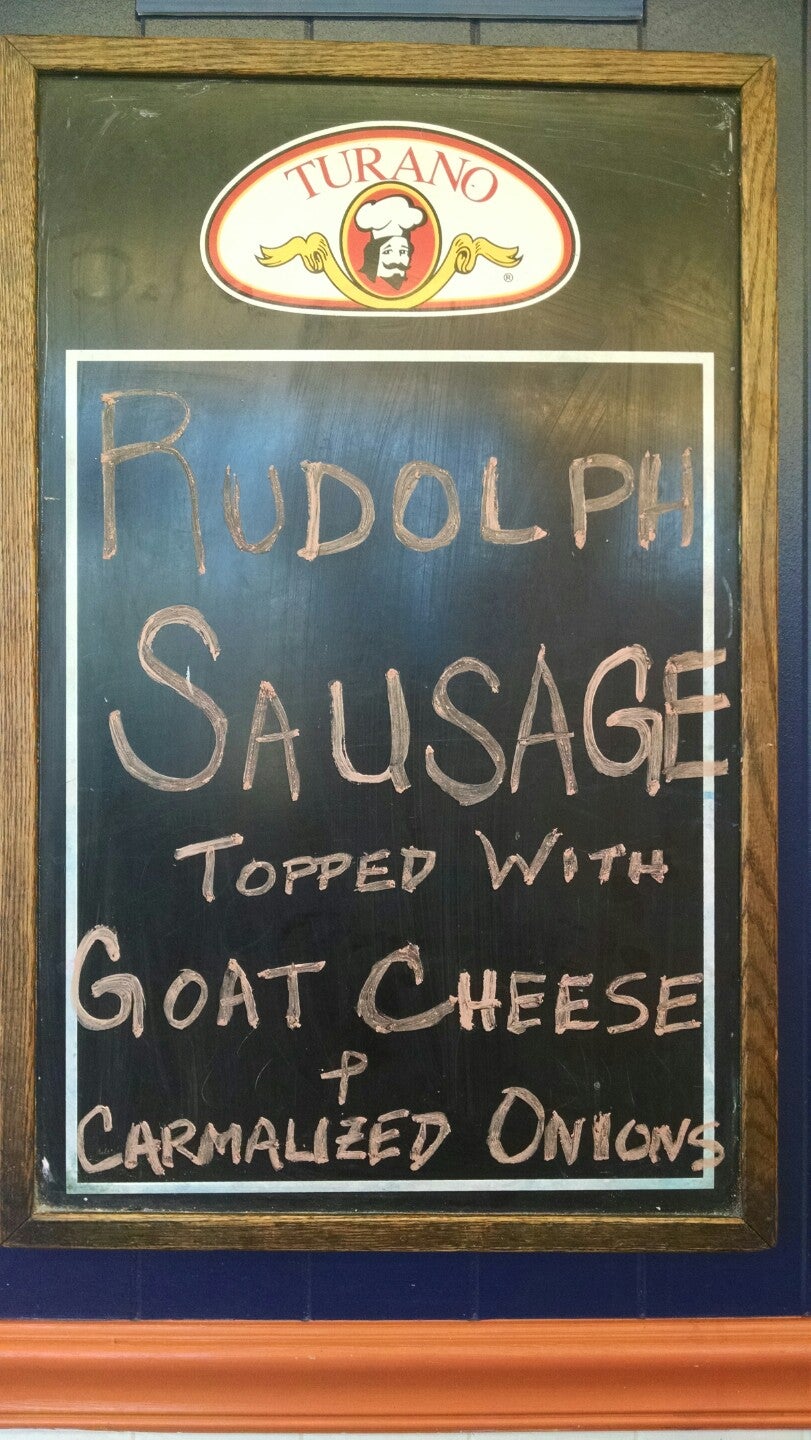 TURANO
®
RUDOLPH
SAUSAGE
TOPPED WITH
GOAT CHEESE
+
CARMALIZED ONIONS